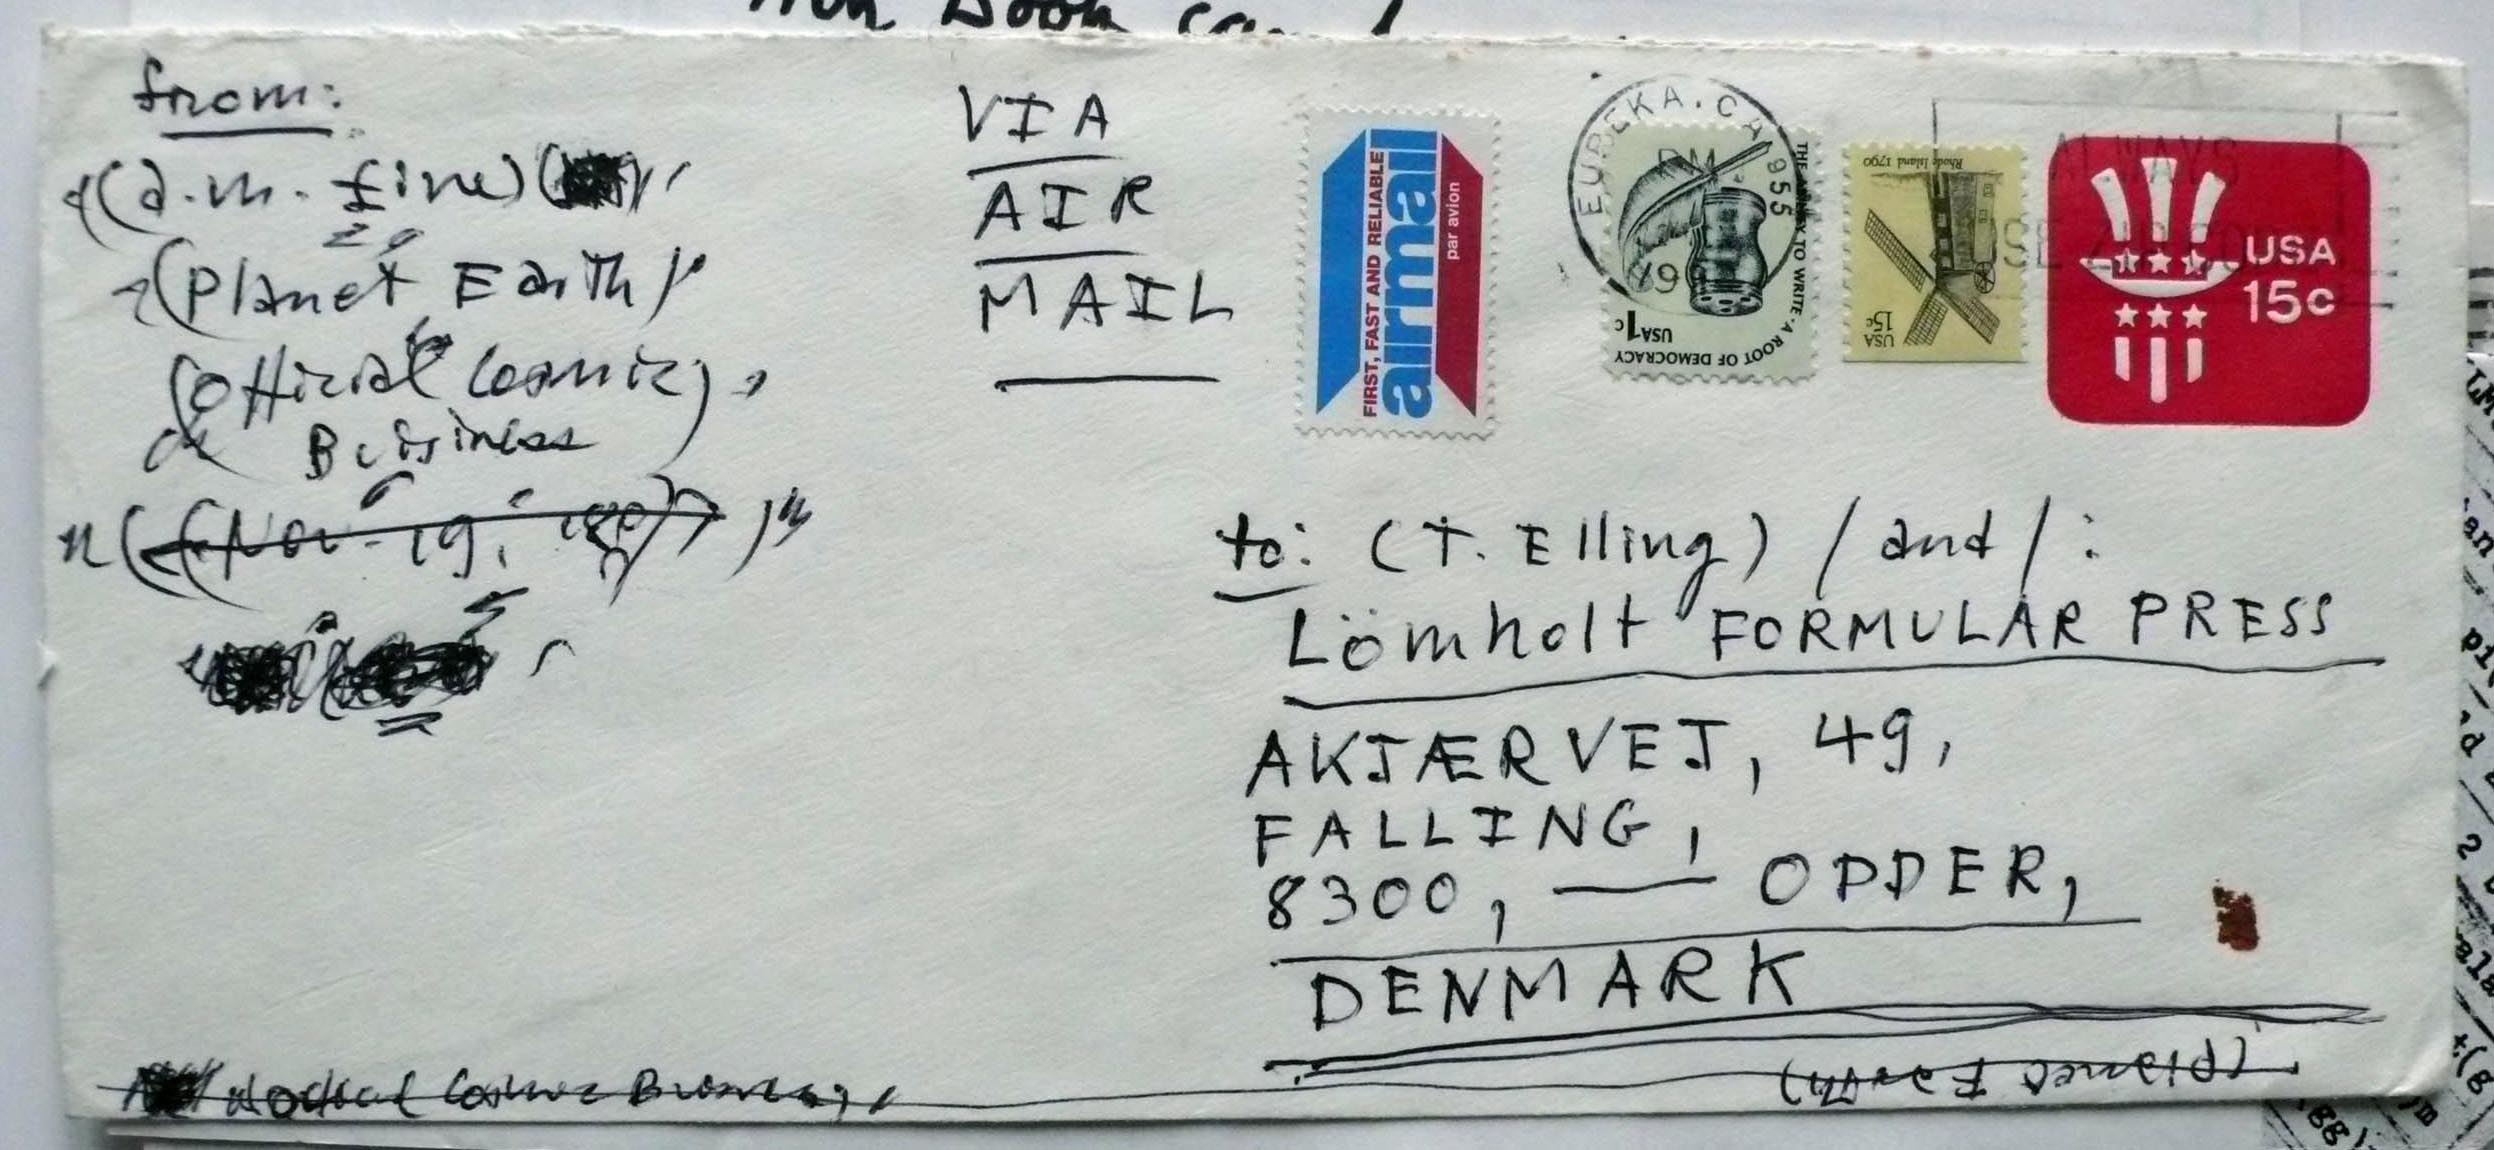 from:
(a.m. fine)
(Planet Earth)
(Official Cosmic
Business
Nov. 19,
VIA
AIR
MAIL
FIRST, FAST AND RELIABLE
airmail
par avion
EUREKA, CA 955
PM
THE ABILITY TO WRITE · A ROOT OF DEMOCRACY
USA 1c
Rhode Island 1790
USA
15c
ALWAYS
USE ZIP CODE
USA
15c
to: (T. Elling) / and / :
Lömholt FORMULAR PRESS
AKJÆRVEJ, 49,
FALLING,
8300, — ODDER,
DENMARK
(Planet Earth)
Cosmic Business,